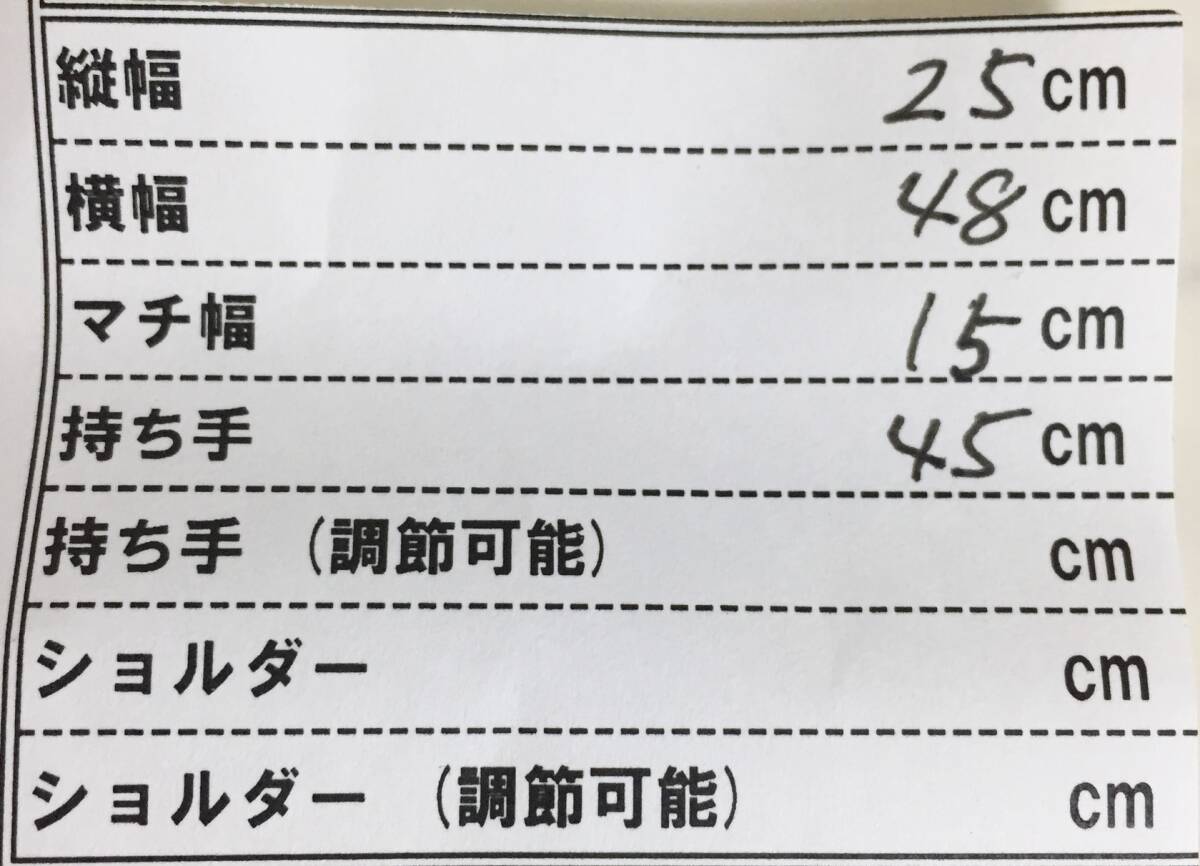 縦幅 25cm
横幅 48cm
マチ幅 15cm
持ち手 45cm
持ち手 (調節可能) cm
ショルダー cm
ショルダー (調節可能) cm